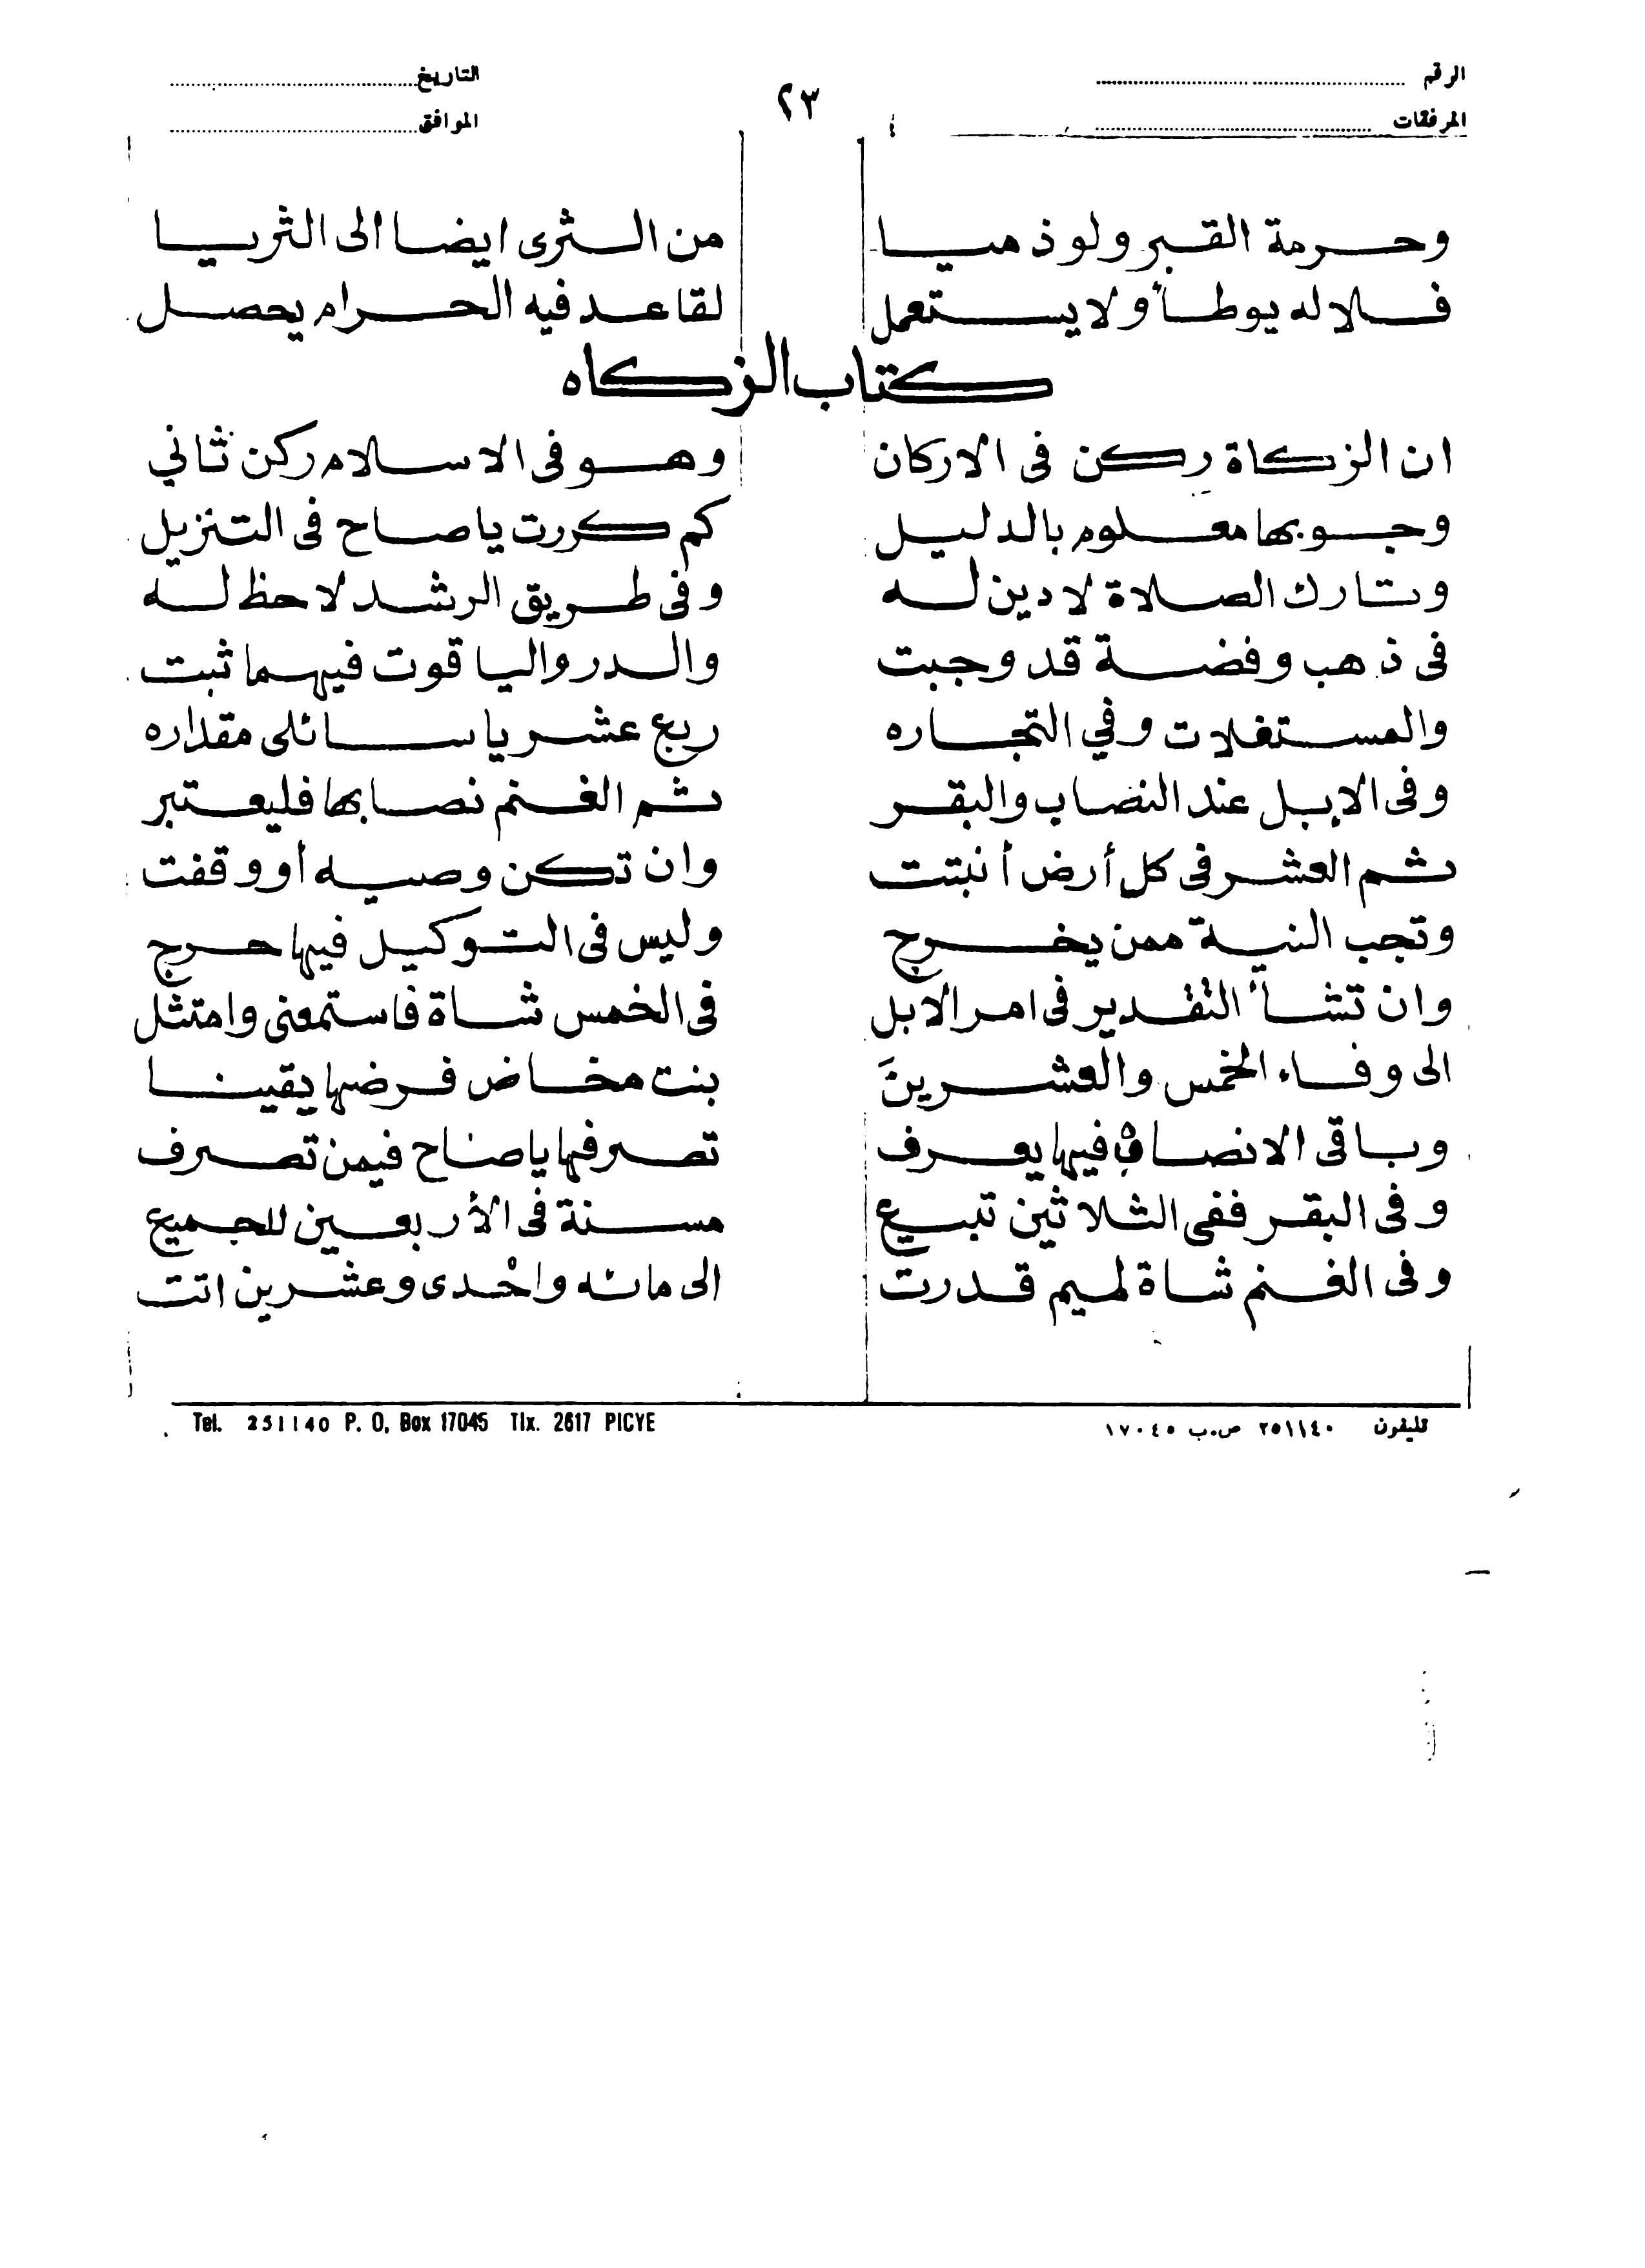 الرقم التاريخ
٢٣
المرفقات الموافق
وحرمة القبر ولو ذميا من الثرى ايضا الى الثريا
فلا له يوطأ ولا يستعمل لقاعد فيه الحرام يحصل
كتاب الزكاه
ان الزكاة ركن فى الاركان وهو فى الاسلام ركن ثاني
وجوبها معلوم بالدليل كم كررت ياصاح فى التنزيل
وتارك الصلاة لا دين له وفى طريق الرشد لا حظ له
فى ذهب وفضة قد وجبت والدر والياقوت فيهما ثبت
والمستغلات وفي التجاره ربع عشر يا سائلى مقداره
وفى الابل عند النصاب والبقر ثم الغنم نصابها فليعتبر
ثم العشر فى كل أرض أنبتت وان تكن وصيه أو وقفت
وتجب النية ممن يخرج وليس فى التوكيل فيها حرج
وان تشأ التقدير فى امر الابل فى الخمس شاة فاستمعنى وامتثل
الى وفاء الخمس والعشرينَ بنت مخاض فرضها يقينا
وباقى الانصاب فيها يعرف تصرفها ياصاح فيمن تصرف
وفى البقر ففى الثلاثين تبيع مسنة فى الأربعين للجميع
وفى الغنم شاة لميم قدرت الى مائه واحدى وعشرين اتت
تليفون ٢٥١١٤٠ ص.ب ١٧٠٤٥ Tel. 251140 P. O, Box 17045 Tlx. 2617 PICYE